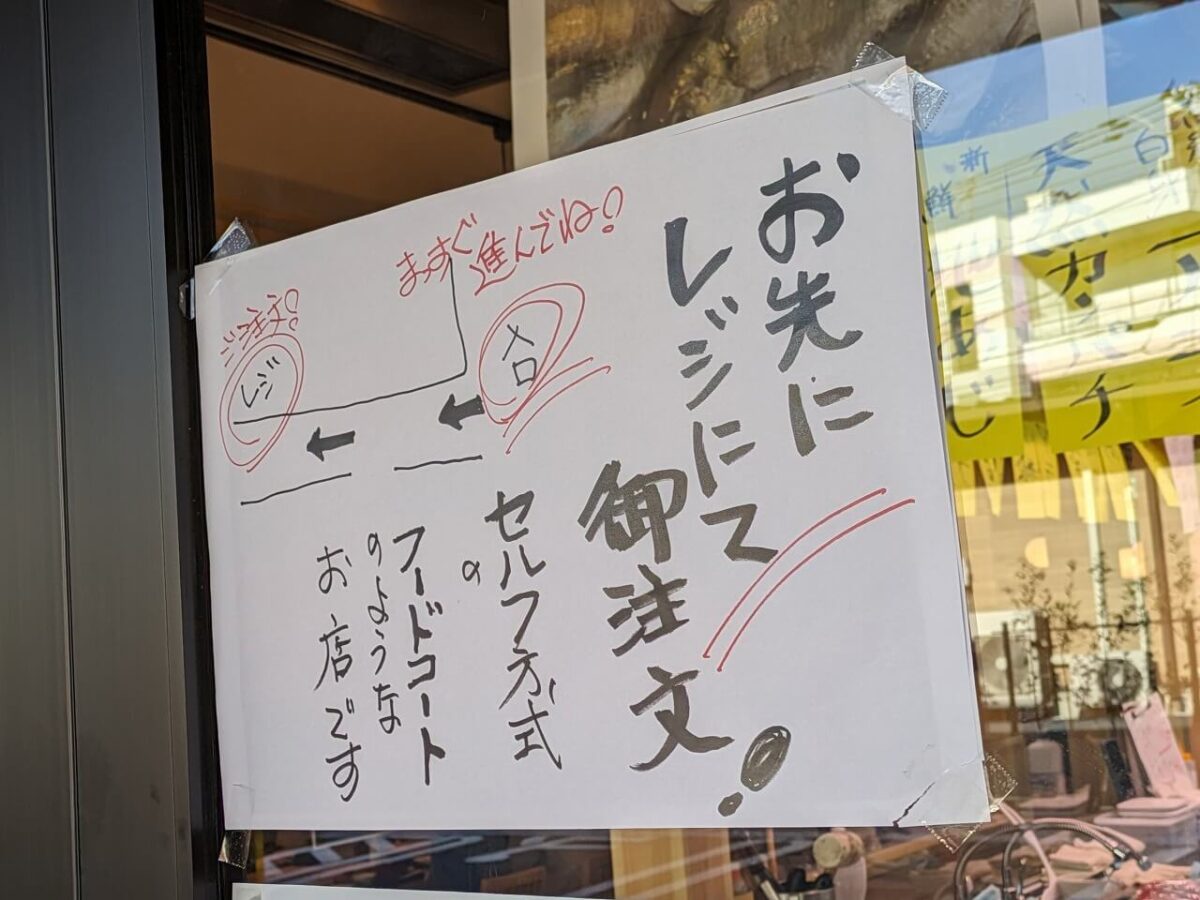 お先に
レジにて
御注文!
セルフ方式
の
フードコート
のような
お店です
まっすぐ
進んでね!
入口
ご注文!
レジ
新鮮
カンパチ
あじ